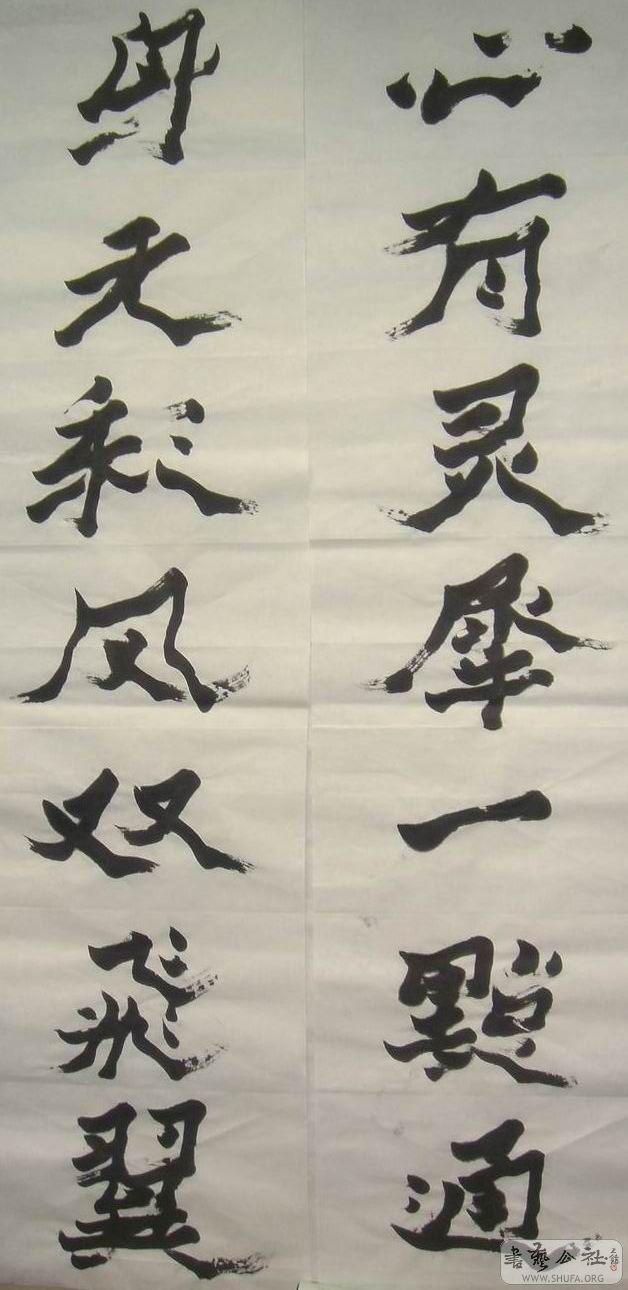 身无彩凤双飛翼
心有灵犀一點通
書藝公社
WWW.SHUFA.ORG